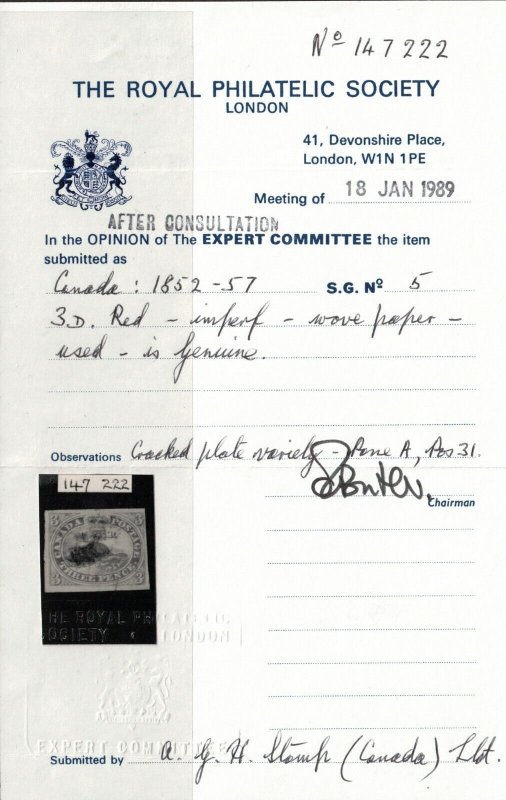 Nº 147222
THE ROYAL PHILATELIC SOCIETY
LONDON
41, Devonshire Place,
London, W1N 1PE
Meeting of 18 JAN 1989
AFTER CONSULTATION
In the OPINION of The EXPERT COMMITTEE the item
submitted as
Canada : 1852-57 S.G. Nº 5
3D. Red - imperf - wove paper -
used - is Genuine.
Observations Cracked plate variety - Pane A, Pos 31.
Chairman
147 222
3 CANADA POSTAGE 3
3 THREE PENCE 3
THE ROYAL PHILATELIC
SOCIETY LONDON
EXPERT COMMITTEE
Submitted by A. G. H. Stamp (Canada) Ltd.